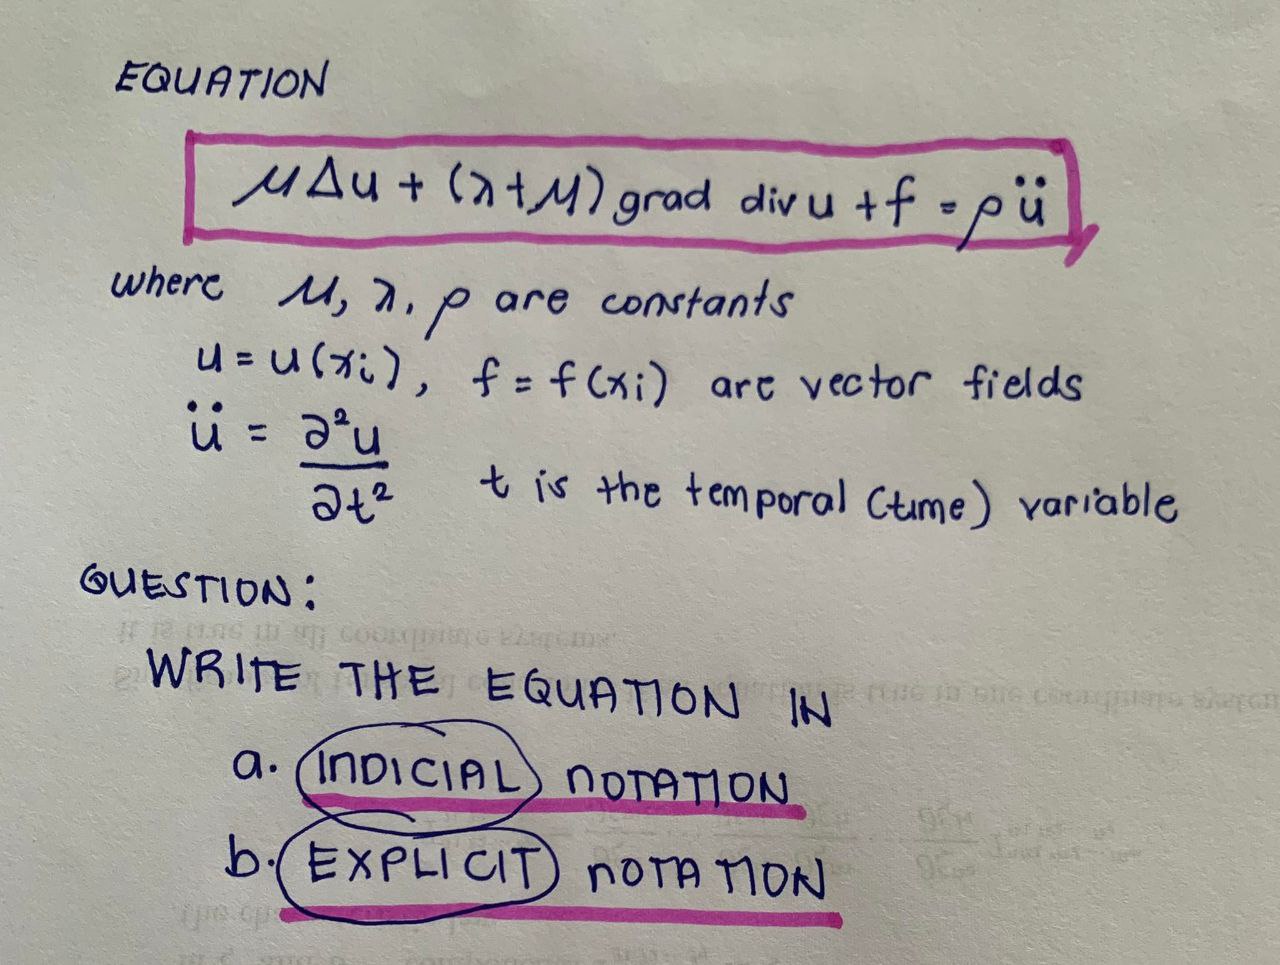 EQUATION
μΔu + (λ+μ) grad div u + f = ρü
where μ, λ, ρ are constants
u = u(xi), f = f(xi) are vector fields
ü = ∂²u / ∂t² t is the temporal (time) variable
QUESTION:
WRITE THE EQUATION IN
a. INDICIAL NOTATION
b. EXPLICIT NOTATION